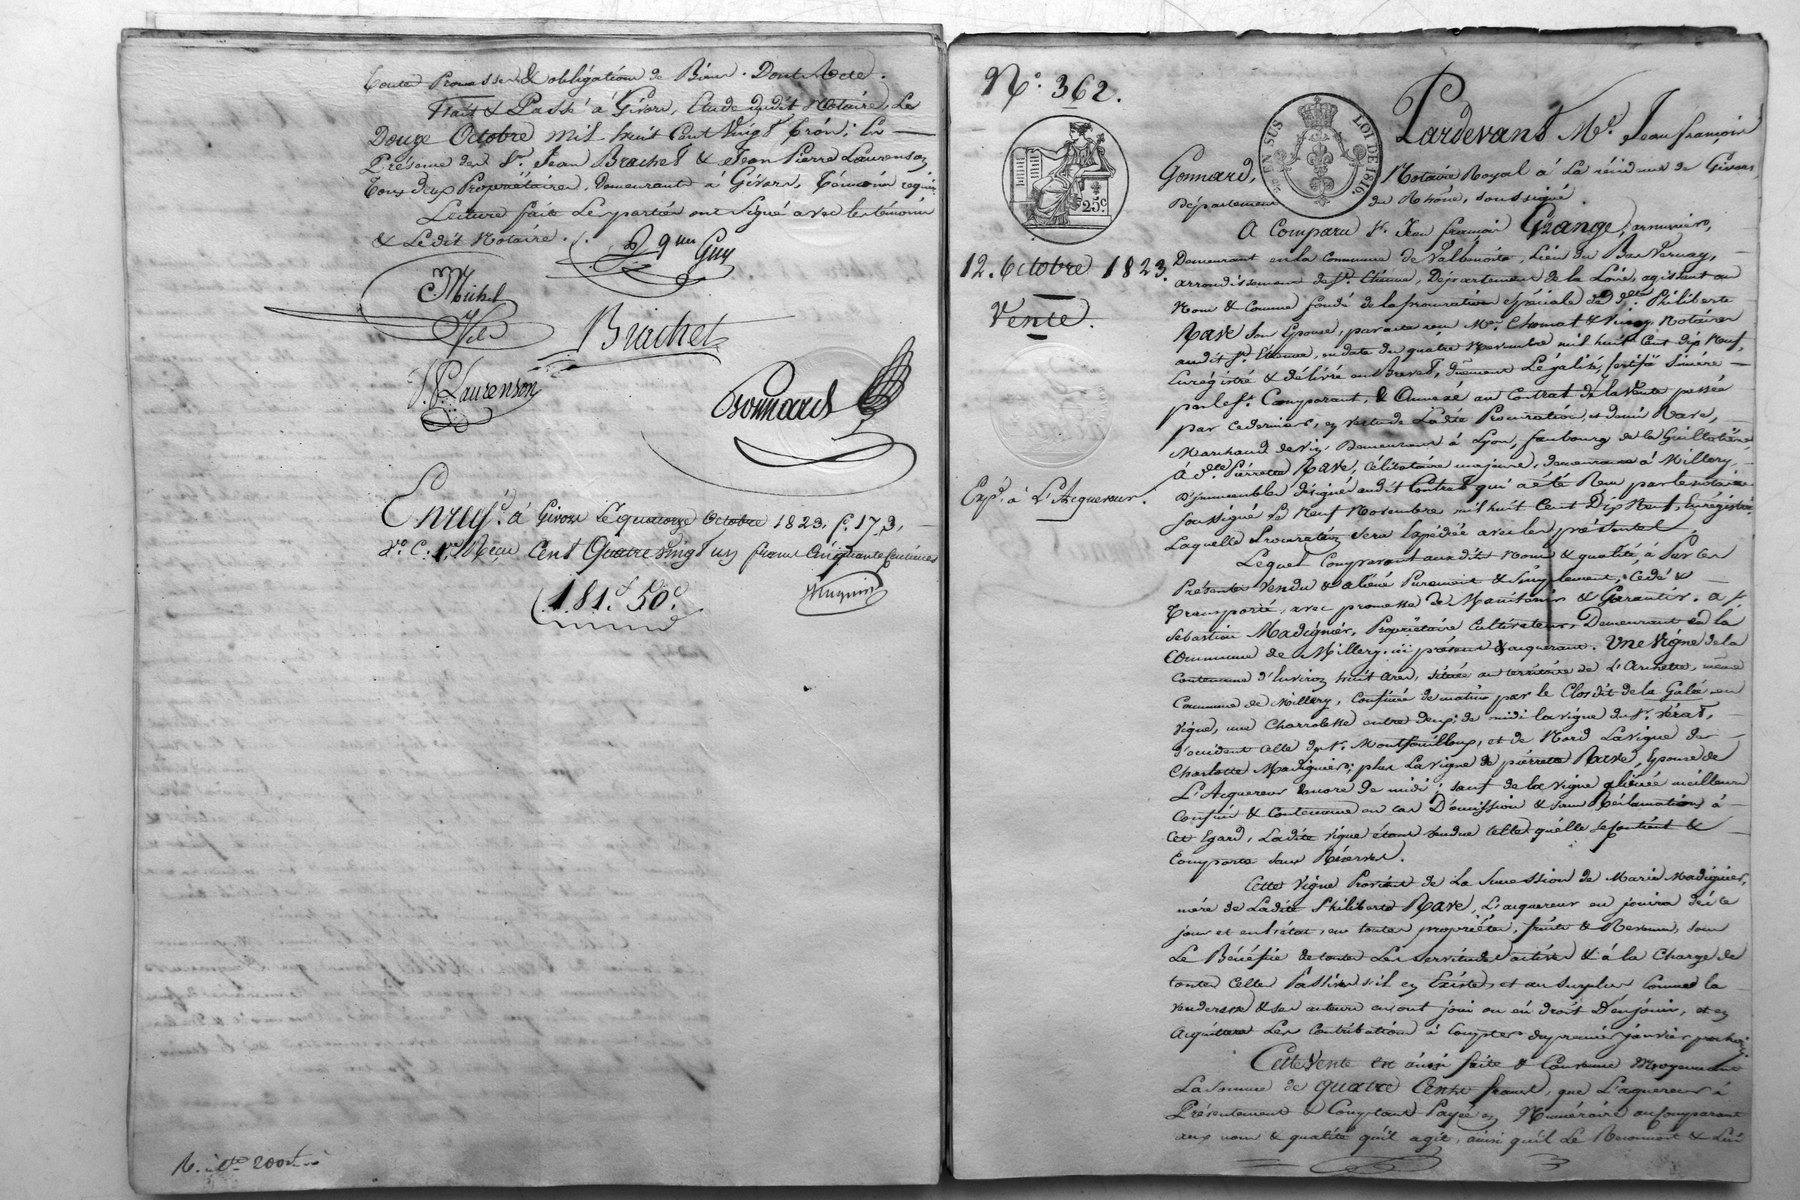 toute Promesse & obligation de Biens. Dont Acte.
Fait & Passé à Givors, Etude dudit Notaire, Le
Douze Octobre mil-huit Cent Vingt trois; En
Présence des Srs. Jean Brachet & Jean Pierre Laurenson,
tous deux Propriétaires, Demeurant à Givors, témoins requis
Lecture faite Les parties ont Signé avec les témoins
& Ledit Notaire.
Guy
Michel
fils
Brachet
J. P. Laurenson
Gonnard
Enregé. à Givors le quatorze Octobre 1823, f. 173,
Vo. C. 1re. Reçu Cent Quatre vingt un francs Cinquante Centimes
181.f 50.c
N°. 362.
EN SUS LOI DE 1816.
25c
12. Octobre 1823.
Vente.
Expé. à L'Acquereur.
Pardevant Me. Jean François
Gonnard, Notaire Royal à La résidence de Givors
Département du Rhône, soussigné
A Comparu Sr. Jean françois Grange, armurier,
Demeurant en la Commune de Valbenoite, Lieu du Bas Vernay,
arrondissement de St. Etienne, Département de la Loire, agissant au
Nom & Comme fondé de la procuration spéciale de de. Philiberte
Rave son Epouse, passée devant Mes. Chomat & Vinoy Notaires
audit St. Etienne, en date du quatre Novembre mil huit Cent dix Neuf,
Enregistré & délivré en Brevet, duement Légalisé, certifié Sincère
par le Sr. Comparant, & Annexé au Contrat de la Vente passée
par ce dernier, en vertu de Ladite Procuration, et Rave,
Marchand de vin Demeurant à Lyon, faubourg de la Guillotière
à dlle Pierrette Rave, Célibataire majeure, demeurant à Millery,
D'immeubles désignés audit Contrat qui a été Reçu par le notaire
soussigné Le Neuf Novembre mil huit Cent Dix Neuf, Enregistré,
Laquelle Procuration sera Expédiée avec les présentes
Lequel Comparant auxdits Noms & qualité à Par les
Présentes Vendu & aliéné Purement & Simplement, Cédé &
Transporté, avec promesse de Maintenir & Garantir. à Sr
Sébastien Madignier, Propriétaire Cultivateur, Demeurant en la
Commune de Millery, ici présent & acquerant. Une Vigne de la
Contenance d'Environ huit ares, située au territoire de L'Archette, même
Commune de Millery, Confinée de matin par le Clos dit de la Galée en
Vigne, une Charrolesse entre deux; de midi la vigne du Sr. Vérat,
d'occident Celle du Sr. Montfouilloux, et de Nord La Vigne de
Charlotte Madignier; plus La Vigne de pierrette Rave, Epouse de
L'Acquereur encore de midi; sauf de la Vigne aliénée meilleurs
Confins & Contenance en cas D'omission & sans Réclamations à
Cet Egard, Ladite vigne étant vendue telle quelle se contient &
Comporte sans Réserves.
Cette Vigne Provient de La Succession de Marie Madignier,
mère de Ladite Philiberte Rave, L'acquereur en jouira dès ce
jour et en l'état, en toutes propriétés, fruits & Revenus, sous
Le Bénéfice de toutes Les servitudes actives & à la Charge de
toutes Celles Passives s'il en Existe, et au surplus Comme la
venderesse & ses auteurs en ont joui ou eû droit D'en jouir, et en
Acquittera Les Contributions à Compter du premier janvier prochain.
Cette Vente est ainsi faite & Convenue Moyennant
La Somme de quatre Cents francs, que L'acquereur à
Présentement & Comptant Payée en Numéraire au Comparant
aux noms & qualité qu'il agit, ainsi qu'il Le Reconnoit & Lui